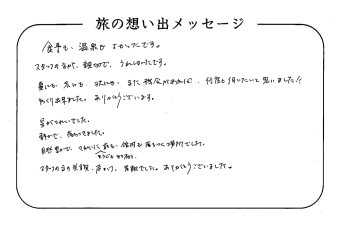 旅の想い出メッセージ
食事も、温泉もよかったです。
スタッフの方が、親切で、うれしかったです。
夏にも、秋にも、また機会があれば、何度も伺いたいと思いました!!
ゆっくり出来ました。ありがとうございます。
星がきれいでした。
静かで、落ちつきました。
自然豊かで、きれいに
落ちつく場所でした。
スタッフの方の笑顔、素敵でした。ありがとうございました。